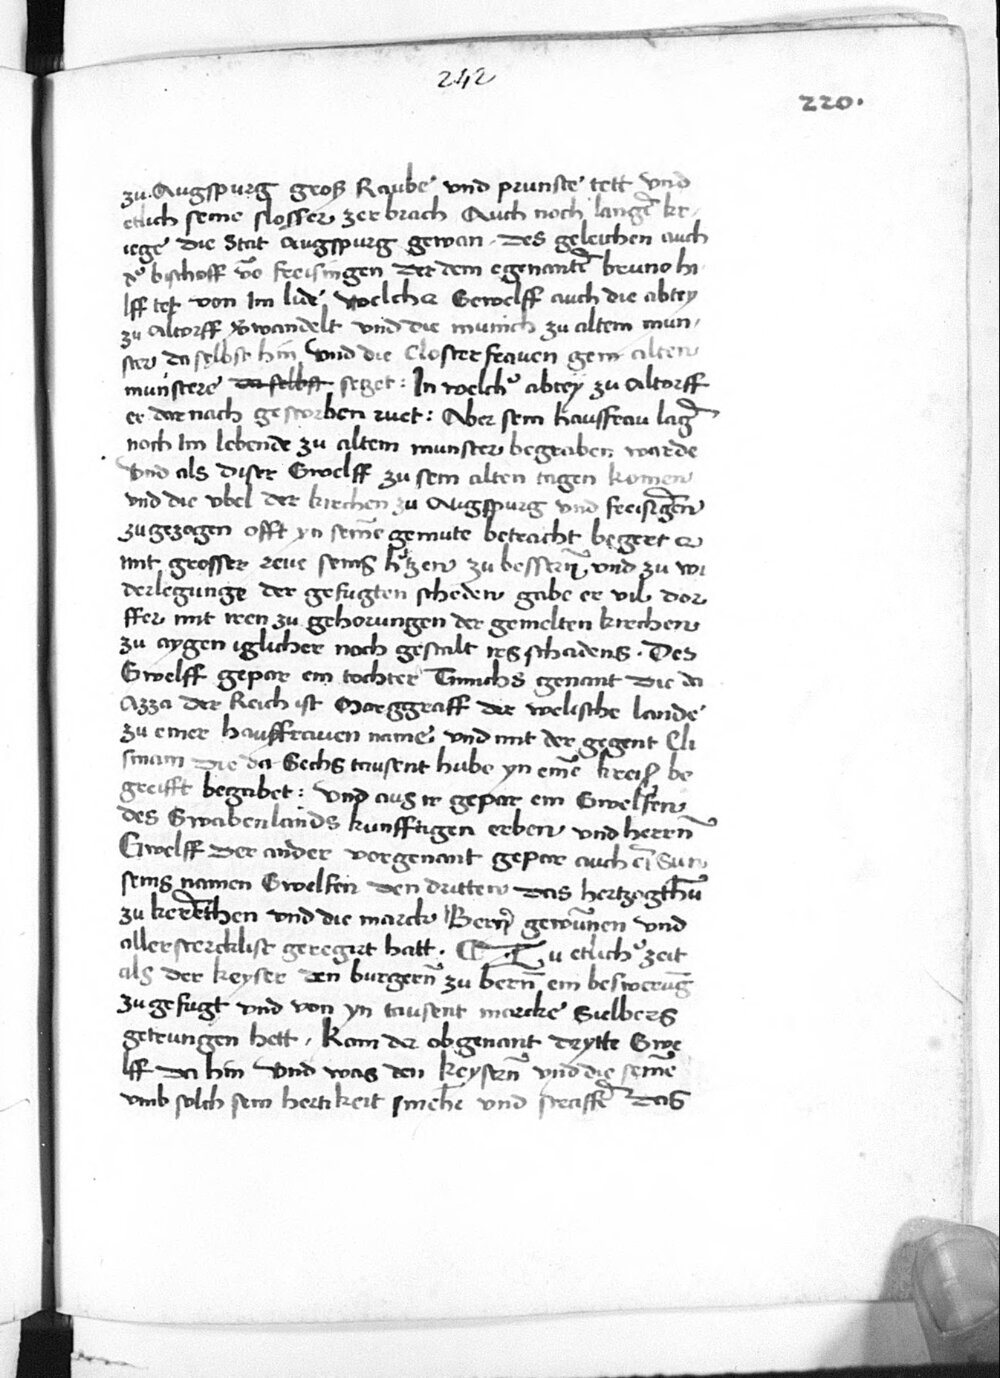 242
220.
zu Augspurg groß Raube vnd prunste tett vnd
etlich seine slosser zerbrach Auch noch lange kr-
iege die Stat Augspurg gewan. Des geleichen auch
bischoff vo freisingen Der dem egenante bruno hi-
lff tet von Im lide welcher Gewelff auch die abtey
zu Altorff vwandelt vnd die munich zu altem mun-
ster da selbst hin vnd die Closterfrauen gein alten
munstere da selbst setzet: In welch abtey zu Altorff
er dar nach gestorben ruet: Aber sein hausfrau lag
noch Im lebende zu altem munster begraben warde
Vnd als diser Gwelff zu sein alten tagen komen
vnd die vbel der kirchen zu Augspurg vnd freisigen
zugezogen offt yn seine gemute betracht begert er
mit grosser reue seins htzen zu bessern vnd zu wi
derlegunge der gefugten scheden gabe er vil dor
ffer mit iren zu gehorungen der gemelten kirchen
zu aygen iglicher noch gestalt irs schadens. Des
Gwelff gepar ein tochter genant Die da
Azza der Reich ist Marggraff der welische lande
zu einer hausfrauen name vnd mit der gegent Eli
sinam Die da Sechs tausent hube yn eine kreiß be
greifft begabet: Vnd aus ir gepar ein Gwelfen
des Swabenlands kunfftigen erben vnd herrn
Gwelff Der ander vorgenant gepar auch ei Sun
seins namen Gwelfen den dritten das hertzogthu
zu kerethen vnd die marck Bern gewunen vnd
aller stercklist geregirt hatt. Zu etlich zeit
als der keyser den burgern zu bern ein beswerug
zugefugt vnd von yn tausent marcke Sielbers
getrungen hett, kam der obgenant drytte Gwe
lff da hin vnd was den keysern vnd die seine
vmb solch sein hertikeit smehe vnd straffe das